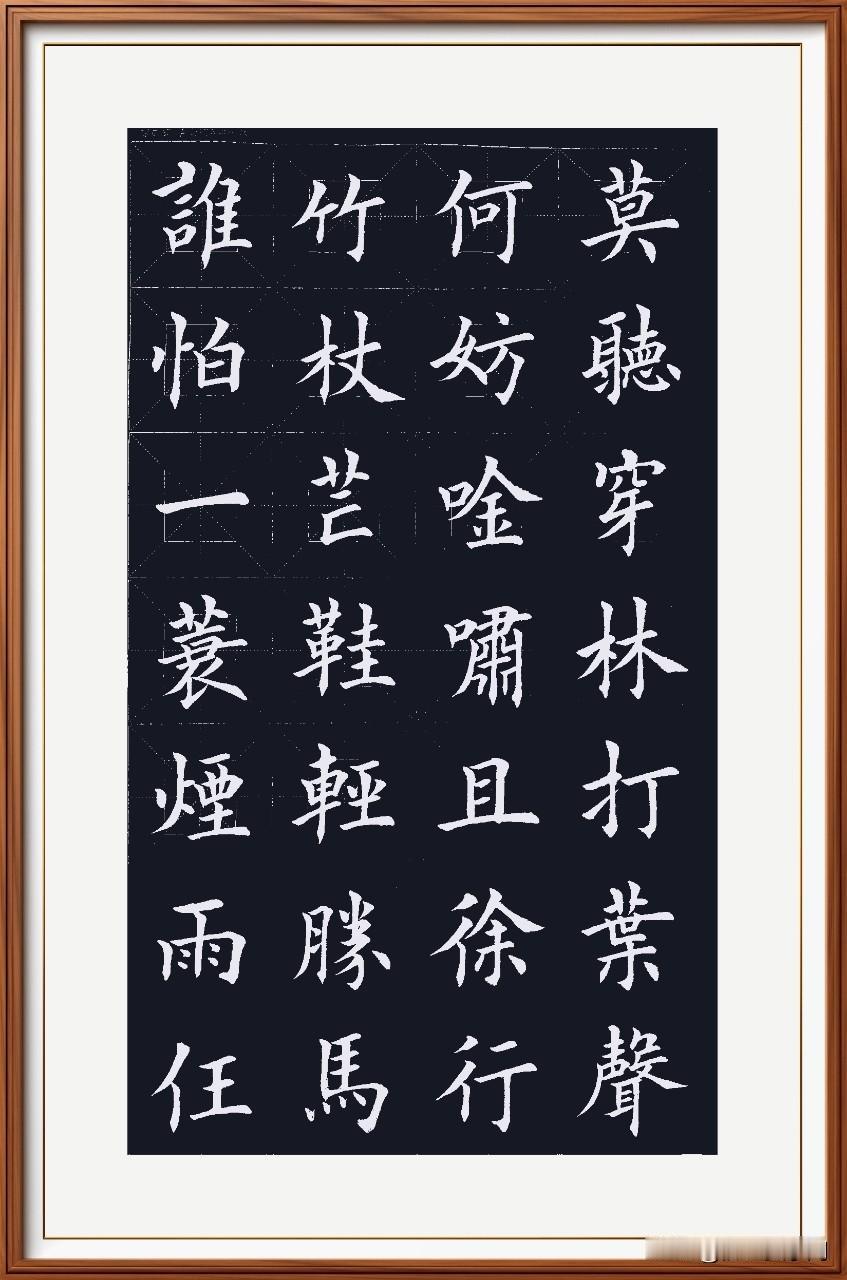 莫聽穿林打葉聲
何妨唫嘯且徐行
竹杖芒鞋輕勝馬
誰怕一蓑煙雨任